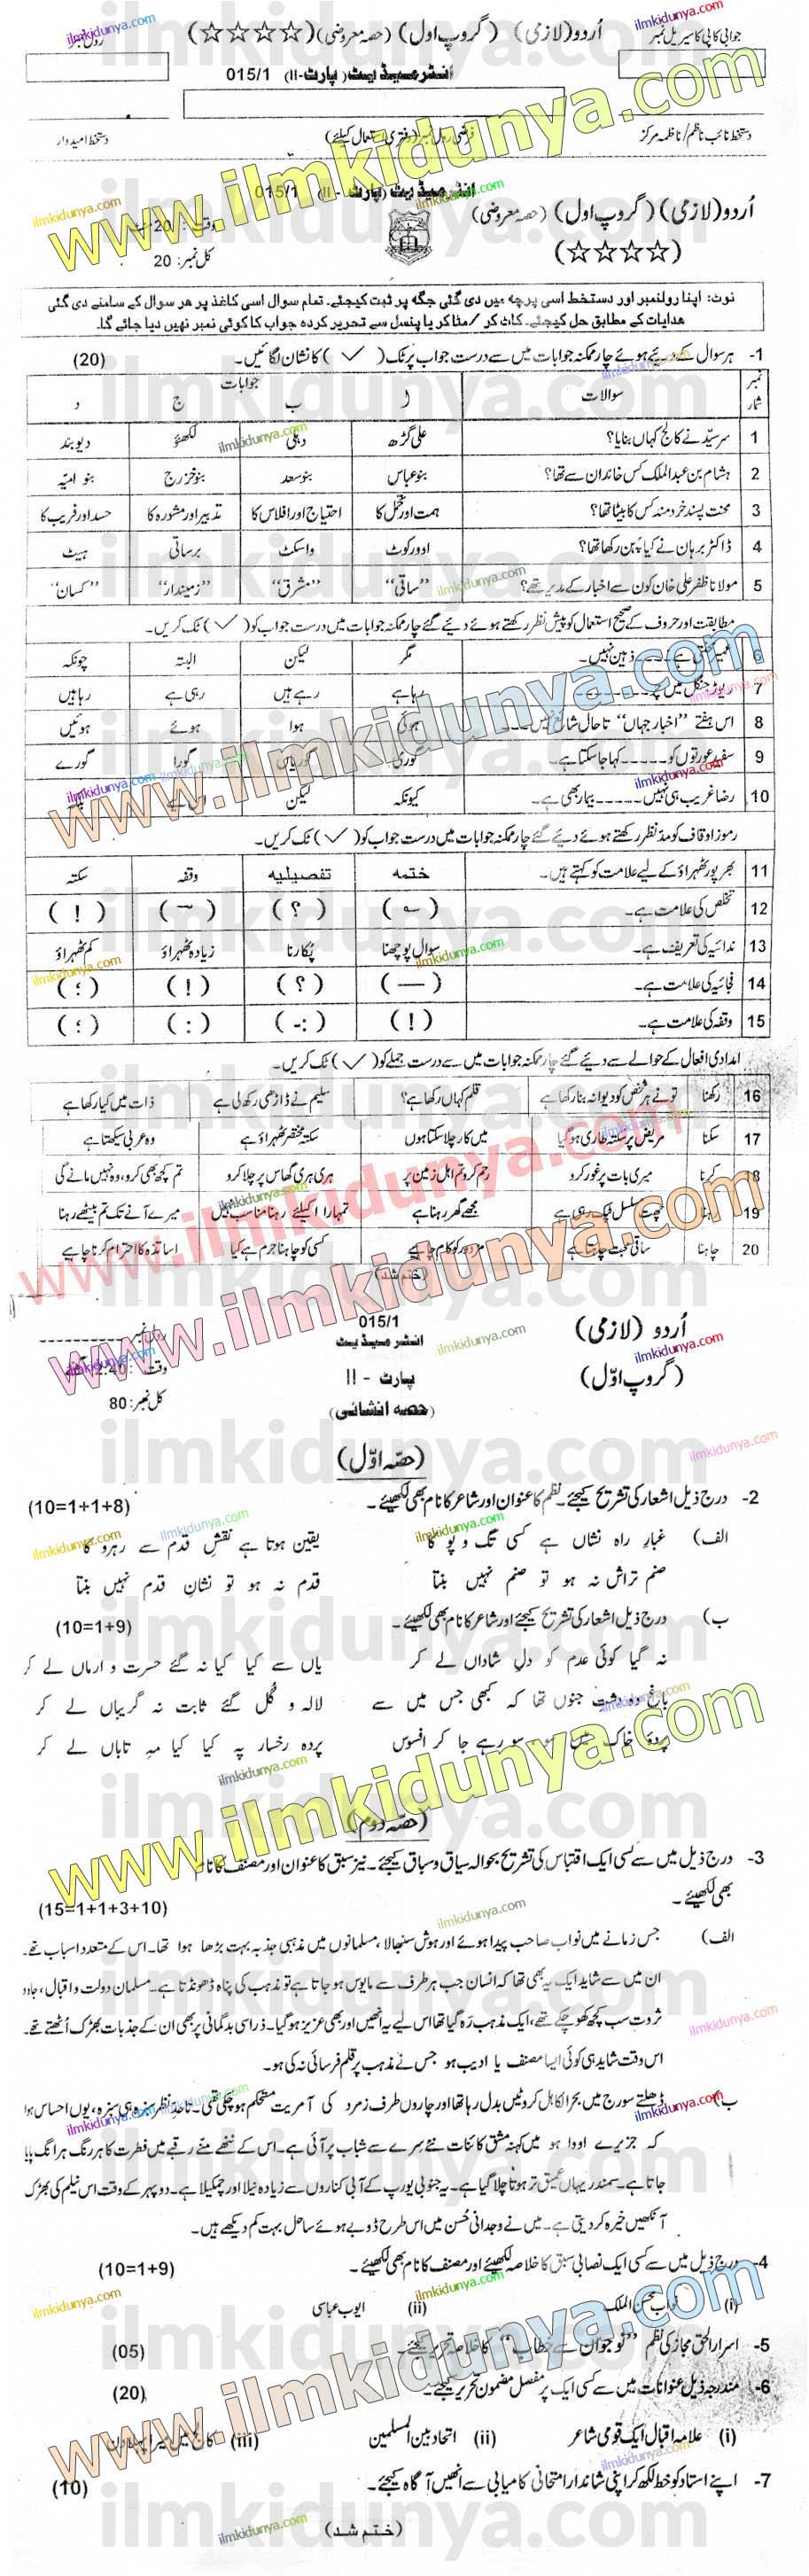 جوابی کاپی کا سیریل نمبر
اُردو (لازمی) (گروپ اول) (حصہ معروضی) (☆☆☆☆)
رول نمبر
انٹرمیڈیٹ (پارٹ-II) 015/1
دستخط نائب ناظم/ناظمہ مرکز
فرضی رول نمبر (دفتری استعمال کیلئے)
دستخط امیدوار
انٹرمیڈیٹ (پارٹ-II) 015/1
اُردو (لازمی) (گروپ اول) (حصہ معروضی)
(☆☆☆☆)
وقت: 20
کل نمبر: 20
نوٹ: اپنا رولنمبر اور دستخط اسی پرچہ میں دی گئی جگہ پر ثبت کیجئے۔ تمام سوال اسی کاغذ پر ہر سوال کے سامنے دی گئی
ہدایات کے مطابق حل کیجئے۔ کاٹ کر / مٹا کر یا پنسل سے تحریر کردہ جواب کا کوئی نمبر نہیں دیا جائے گا۔
1- ہر سوال کے دیئے ہوئے چار ممکنہ جوابات میں سے درست جواب پر ٹک (✓) کا نشان لگائیں۔ (20)
نمبر شمار سوالات جوابات
ا ب ج د
1 سرسیّد نے کالج کہاں بنایا؟ علی گڑھ دہلی لکھنؤ دیوبند
2 ہشام بن عبدالملک کس خاندان سے تھا؟ بنو عباس بنو سعد بنو خزرج بنو امیّہ
3 محنت پسند خردمند کس کا بیٹا تھا؟ ہمت اور تحمّل کا احتیاج اور افلاس کا تدبیر اور مشورہ کا حسد اور فریب کا
4 ڈاکٹر برہان نے کیا پہن رکھا تھا؟ اوورکوٹ واسکٹ برساتی ہیٹ
5 مولانا ظفر علی خان کون سے اخبار کے مدیر تھے؟ "ساقی" "مشرق" "زمیندار" "کسان"
مطابقت اور حروف کے صحیح استعمال کو پیش نظر رکھتے ہوئے دیئے گئے چار ممکنہ جوابات میں درست جواب کو (✓) ٹک کریں۔
6 محنتی ہے ۔۔۔۔ ذہین نہیں۔ مگر لیکن البتہ چونکہ
7 ریوڑ جنگل میں ۔۔۔۔ رہا ہے رہے ہیں رہی ہے رہا ہیں
8 اس ہفتے "اخبار جہاں" تاحال شائع نہیں ۔۔۔ ہوئی ہوا ہوئے ہوئیں
9 سفید عورتوں کو ۔۔۔۔۔ کہا جا سکتا ہے۔ گوری گوریاں گورا گورے
10 رضا غریب ہی نہیں ۔۔۔۔۔ بیمار بھی ہے۔ کیونکہ لیکن اس لیے بلکہ
رموز اوقاف کو مدنظر رکھتے ہوئے دیئے گئے چار ممکنہ جوابات میں درست جواب کو (✓) ٹک کریں۔
11 بھرپور ٹھہراؤ کے لیے علامت کو کہتے ہیں۔ ختمہ تفصیلیہ وقفہ سکتہ
12 تخلص کی علامت ہے۔ ( ؎ ) ( ؟ ) ( ؔ ) ( ! )
13 ندائیہ کی تعریف ہے۔ سوال پوچھنا پکارنا زیادہ ٹھہراؤ کم ٹھہراؤ
14 فجائیہ کی علامت ہے۔ ( — ) ( ؟ ) ( ! ) ( ؛ )
15 وقفہ کی علامت ہے۔ ( ! ) ( :- ) ( : ) ( ؛ )
امدادی افعال کے حوالے سے دیئے گئے چار ممکنہ جوابات میں سے درست جملے کو (✓) ٹک کریں۔
16 رکھنا تو نے ہر شخص کو دیوانہ بنا رکھا ہے قلم کہاں رکھا ہے؟ سلیم نے داڑھی رکھ لی ہے ذات میں کیا رکھا ہے
17 سکنا مریض پر سکتہ طاری ہو گیا میں کار چلا سکتا ہوں سکتہ مختصر ٹھہراؤ ہے وہ عربی سیکھتا ہے
18 کرنا میری بات پر غور کرو رحم کرو تم اہل زمین پر ہری ہری گھاس پر چلا کرو تم کچھ بھی کرو، وہ نہیں مانے گی
19 رہنا چھت مسلسل ٹپک رہی ہے مجھے گھر رہنا ہے تمہارا اکیلئے رہنا مناسب نہیں میرے آنے تک تم بیٹھے رہنا
20 چاہنا ساقی محبت چاہتا ہے مزدور کو کام چاہیے کسی کو چاہنا جرم ہے کیا اساتذہ کا احترام کرنا چاہیے
(ختم شد)
اُردو (لازمی)
(گروپ اوّل)
015/1
انٹرمیڈیٹ
پارٹ - II
(حصہ انشائی)
رول نمبر
وقت: 2:40
کل نمبر: 80
(حصّہ اوّل)
2- درج ذیل اشعار کی تشریح کیجئے۔ نظم کا عنوان اور شاعر کا نام بھی لکھیئے۔ (10=1+1+8)
الف) غبارِ راہ نشاں ہے کسی تگ و پو کا یقین ہوتا ہے نقشِ قدم سے رہرو کا
صنم تراش نہ ہو تو صنم نہیں بنتا قدم نہ ہو تو نشانِ قدم نہیں بنتا
ب) درج ذیل اشعار کی تشریح کیجئے اور شاعر کا نام بھی لکھیئے۔ (10=1+9)
نہ گیا کوئی عدم کو دلِ شاداں لے کر یاں سے کیا کیا نہ گئے حسرت و ارماں لے کر
باغ وہ دشتِ جنوں تھا کہ کبھی جس میں سے لالہ و گُل گئے ثابت نہ گریباں لے کر
پردۂ خاک میں سو سو رہے جا کر افسوس پردہ رخسار پہ کیا کیا مہِ تاباں لے کر
(حصّہ دوم)
3- درج ذیل میں سے کسی ایک اقتباس کی تشریح بحوالہ سیاق و سباق کیجئے۔ نیز سبق کا عنوان اور مصنف کا نام
بھی لکھیئے۔ (15=1+1+3+10)
الف) جس زمانے میں نواب صاحب پیدا ہوئے اور ہوش سنبھالا، مسلمانوں میں مذہبی جذبہ بہت بڑھا ہوا تھا۔ اس کے متعدد اسباب تھے۔
ان میں سے شاید ایک یہ بھی تھا کہ انسان جب ہر طرف سے مایوس ہو جاتا ہے تو مذہب کی پناہ ڈھونڈتا ہے۔ مسلمان دولت و اقبال، جاہ و
ثروت سب کچھ کھو چکے تھے، ایک مذہب رہ گیا تھا اس لیے یہ انھیں اور بھی عزیز ہو گیا۔ ذرا سی بدگمانی پر بھی ان کے جذبات بھڑک اُٹھتے تھے۔
اس وقت شاید ہی کوئی ایسا مصنف یا ادیب ہو جس نے مذہب پر قلم فرسائی نہ کی ہو۔
ب) ڈھلتے سورج میں بحرالکاہل کروٹیں بدل رہا تھا اور چاروں طرف زمرد کی آمریت مستحکم ہو چکی تھی۔ تاحدِ نظر سبزہ ہی سبزہ، یوں احساس ہوا
کہ جزیرے اووا ہو میں کہنہ مشق کائنات نئے سرے سے شباب پر آئی ہے۔ اس کے ننھے منّے رقبے میں فطرت کا ہر رنگ ہرا نگ پایا
جاتا ہے۔ سمندر یہاں عمیق تر ہوتا چلا گیا ہے۔ یہ جنوبی یورپ کے آبی کناروں سے زیادہ نیلا اور چمکیلا ہے۔ دوپہر کے وقت اس نیلم کی بھڑک
آنکھیں خیرہ کر دیتی ہے۔ میں نے وجدانی حُسن میں اس طرح ڈوبے ہوئے ساحل بہت کم دیکھے ہیں۔
4- درج ذیل میں سے کسی ایک نصابی سبق کا خلاصہ لکھیئے اور مصنف کا نام بھی لکھیئے۔ (10=1+9)
(i) نواب محسن الملک (ii) ایوب عباسی
5- اسرار الحق مجاز کی نظم "نوجوان سے خطاب" کا خلاصہ تحریر کیجئے۔ (05)
6- مندرجہ ذیل عنوانات میں سے کسی ایک پر مفصل مضمون تحریر کیجئے۔ (20)
(i) علامہ اقبال ایک قومی شاعر (ii) اتحاد بین المسلمین (iii) کالج میں میرا پہلا دن
7- اپنے استاد کو خط لکھ کر اپنی شاندار امتحانی کامیابی سے انھیں آگاہ کیجئے۔ (10)
(ختم شد)
www.ilmkidunya.com
ilmkidunya.com